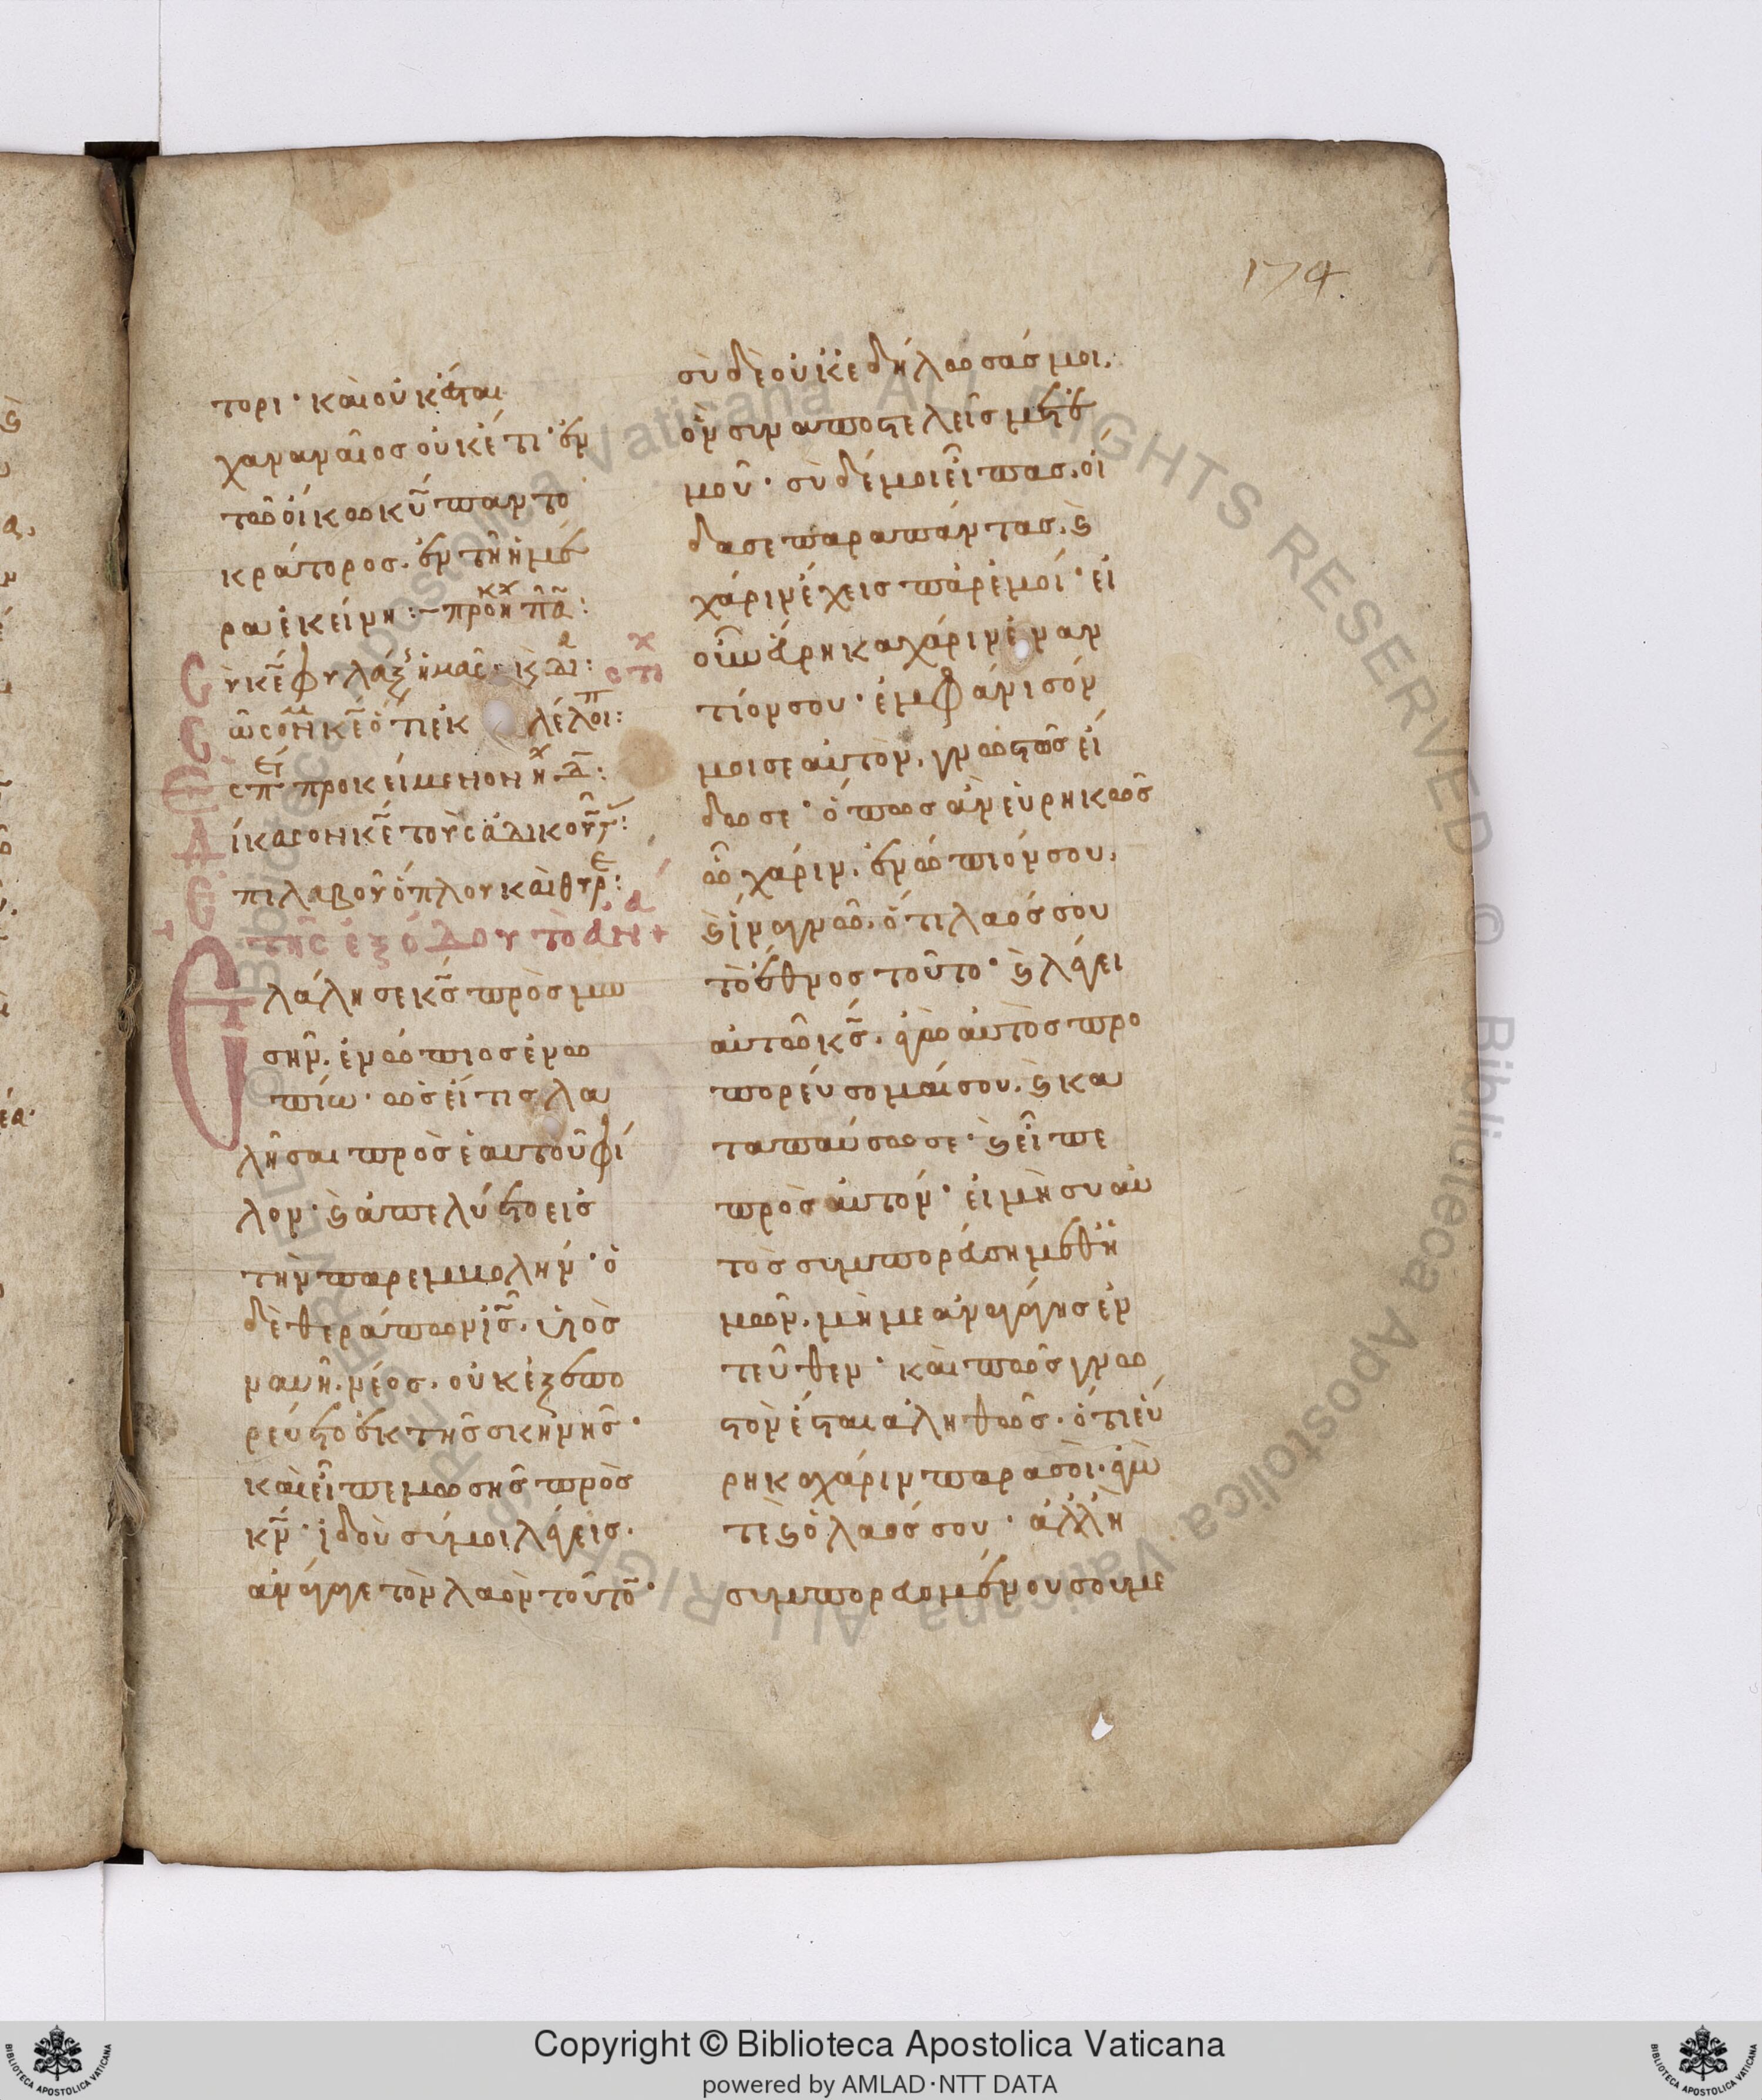 174.
τορι· καὶ οὐκ ἔσται
χαναναῖος οὐκέτι ἐν
τῶ οἴκω κ̅υ̅ παντο
κράτορος. ἐν τῆ ἡμέ
ρα ἐκείνη :– προκ
Cὺ κ̅ε̅ φυλάξ ἡμᾶς
Cῶσόν με κ̅ε̅ ὅτι ἐκλέλοι:
προκείμενον
Δίκασον κ̅ε̅ τοὺς ἀδικοῦντ:
Ἐπιλαβοῦ ὅπλου καὶ θυρε:
τῆς ἐξόδου τὸ ἀν +
Ἐλάλησε κ̅ς̅ πρὸς μωυ
σῆν. ἐνώπιος ἐνω
πίω. ὡς εἴ τις λα
λῆσαι πρὸς ἑαυτοῦ φί
λον· ϗ ἀπελύετο εἰς
τὴν παρεμβολήν· ὁ
δὲ θεράπων ι̅ς̅. υἱὸς
ναυῆ. νέος. οὐκ ἐξεπο
ρεύετο ἐκ τῆς σκηνῆς·
καὶ εἶπε μωσῆς πρὸς
κ̅ν̅· ἰδοὺ σύ μοι λέγεις.
ἀνάγαγε τὸν λαὸν τοῦτο·
σὺ δὲ οὐκ ἐδήλωσάς μοι.
ὃν συναποστελεῖς μετ ἐ
μοῦ· σὺ δέ μοι εἶπας. οἶ
δα σε παρα πάντας. ϗ
χάριν ἔχεις παρ ἐμοί· εἰ
οὖν εὕρηκα χάριν ἐναν
τίον σου· ἐμφάνισόν
μοι σεαυτόν. γνωστῶς εἴ
δω σε· ὅπως ἂν εὑρηκὼς
ὦ χάριν. ἐνώπιόν σου.
ϗ ἵνα γνῶ. ὅτι λαός σου
τὸ ἔθνος τοῦτο· ϗ λέγει
αυτῶ κ̅ς̅. ἐγὼ αὐτὸς προ
πορεύσομαί σου. ϗ κα
ταπαύσω σε· ϗ εἶπε
πρὸς αὐτόν· εἰ μὴ σὺ αὐ
τὸς συμπορεύση μεθ ἡ
μῶν. μή με ἀναγάγης ἐν
τεῦθεν· καὶ πῶς γνω
στὸν ἔσται ἀληθῶς. ὅτι εὕ
ρηκα χάριν παρα σοὶ. ἐγώ
τε ϗ ὁ λαός σου· ἀλλ ἢ
συμπορευομένου σου με